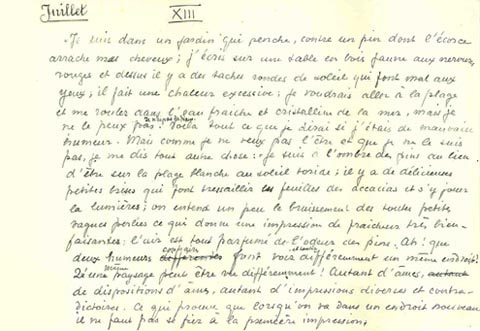 Juillet XIII
"Je suis dans un jardin qui penche, contre un pin dont l'écorce
arrache mes cheveux; j'écris sur une table en bois jaune aux nervures
rouges et dessus il y a des taches rondes de soleil qui font mal aux
yeux; il fait une chaleur excessive; je voudrais aller à la plage
et me rouler dans l'eau fraîche et cristalline de la mer, mais je
ne le peux pas." Voilà tout ce que je dirai si j'étais de mauvaise
humeur. Mais comme je ne veux pas l'être et que je ne le suis
pas, je me dis tout autre chose: "Je suis à l'ombre des pins au lieu
d'être sur la plage blanche au soleil torride; il y a de délicieuses
petites brises qui font tressaillir les feuilles des accacias et s'y jouer
la lumière; on entend un peu le bruissement des toutes petites
vagues perlées ce qui donne une impression de fraîcheur très bien-
faisante; l'air est tout parfumé de l'odeur des pins. Ah! que
deux humeurs différentes font voir différemment un même endroit!
Qu'une même paysage peut être vu différemment! Autant d'âmes, autant
de dispositions d'âmes, autant d'impressions diverses et contra-
dictoires. Ce qui prouve que lorsqu'on va dans un endroit nouveau
il ne faut pas se fier à la première impression.